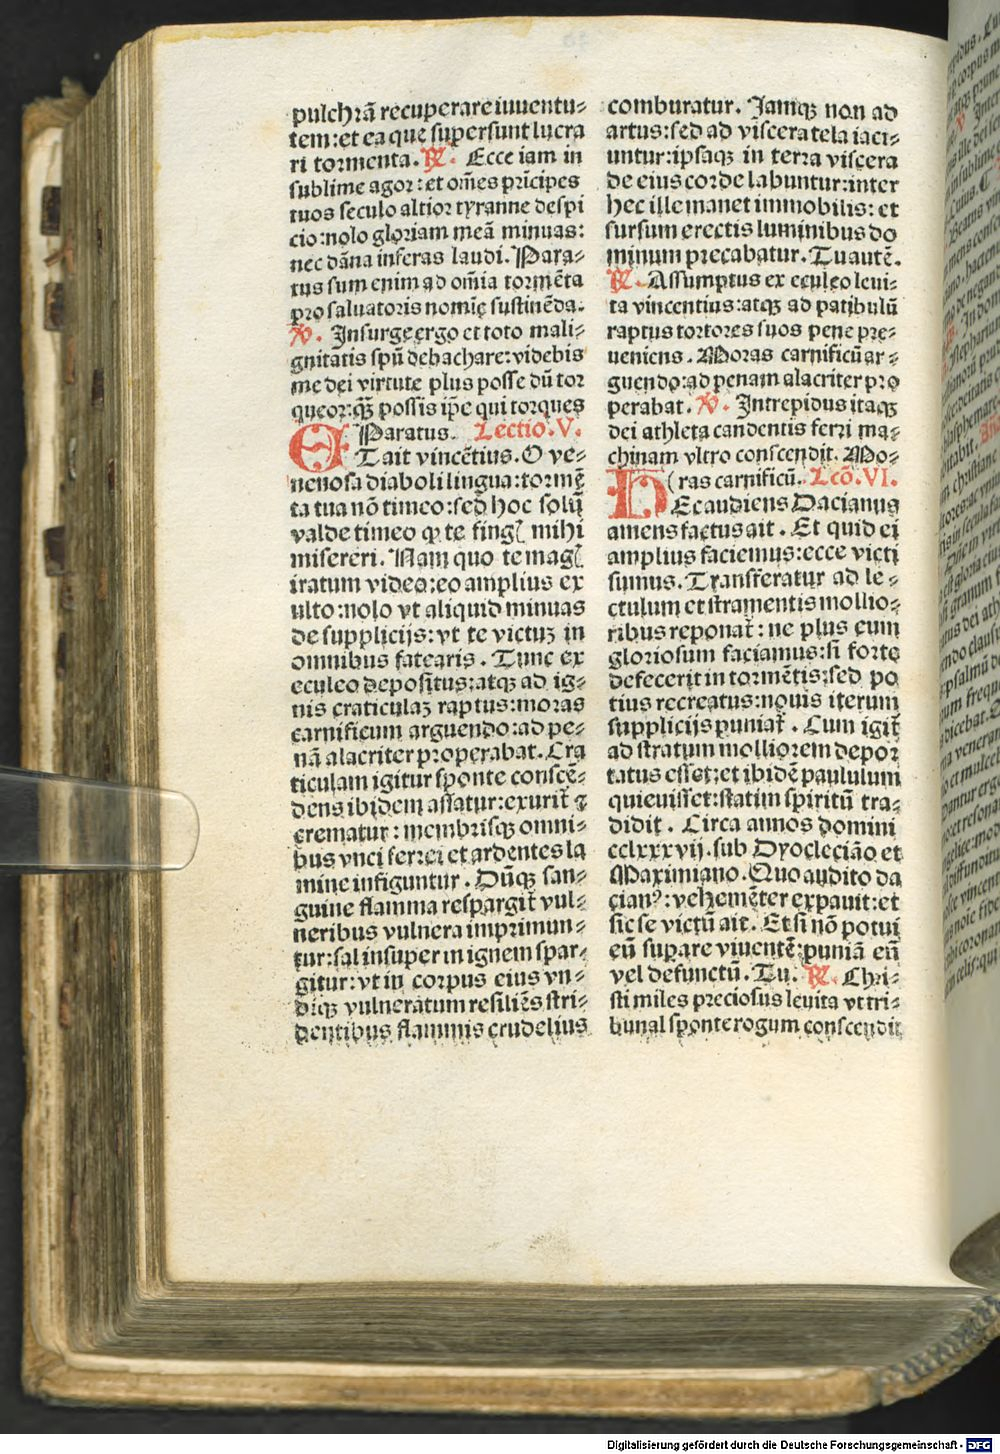 pulchrã recuperare iuuentu⸗
tem: et ea que supersunt lucra
ri tormenta. ℟. Ecce iam in
sublime agor: et om̃es prĩcipes
tuos seculo altior tyranne despi
cio: nolo gloriam meã minuas:
nec dãna inferas laudi. Para⸗
tus sum enim ad om̃ia tormẽta
pro saluatoris nomie sustinẽda.
℣. Insurge ergo et toto mali⸗
gnitatis spũ debachare: videbis
me dei virtute plus posse dũ tor
queor: q̃ꝫ possis ip̃e qui torques
Paratus. Lectio. V.
ET ait vincẽtius. O ve⸗
nenosa diaboli lingua: tormẽ
ta tua nõ timeo: sed hoc solũ
valde timeo ꝙ te fingꝭ mihi
misereri. Nam quo te magꝭ
iratum video: eo amplius ex
ulto: nolo vt aliquid minuas
de supplicijs: vt te victuꝫ in
omnibus fatearis. Tunc ex
eculeo depositus: atqꝫ ad ig⸗
nis craticulaꝫ raptus: moras
carnificum arguendo: ad pe⸗
nã alacriter properabat. Cra
ticulam igitur sponte conscẽ⸗
dens ibidem assatur: exurit᷑ ⁊
crematur: membrisqꝫ omni⸗
bus vnci ferrei et ardentes la
mine infiguntur. Dũqꝫ san⸗
guine flamma respargit᷑ vul⸗
neribus vulnera imprimun⸗
tur: sal insuper in ignem spar⸗
gitur: vt in corpus eius vn⸗
diqꝫ vulneratum resiliẽs stri⸗
dentibus flammis crudelius
comburatur. Jamqꝫ non ad
artus: sed ad viscera tela iaci⸗
untur: ipsaqꝫ in terra viscera
de eius corde labuntur: inter
hec ille manet immobilis: et
sursum erectis luminibus do
minum precabatur. Tu autẽ.
℟. Assumptus ex eculeo leui⸗
ta vincentius: atqꝫ ad patibulũ
raptus tortores suos pene pre⸗
ueniens. Moras carnificũ ar⸗
guendo: ad penam alacriter pro
perabat. ℣. Intrepidus itaqꝫ
dei athleta candentis ferri ma⸗
chinam vltro conscendit. Mo⸗
(ras carnificũ. Lcõ. VI.
HEc audiens Dacianus
amens factus ait. Et quid ei
amplius faciemus: ecce victi
sumus. Transferatur ad le⸗
ctulum et stramentis mollio⸗
ribus reponat᷑: ne plus eum
gloriosum faciamus: si forte
defecerit in tormẽtis: sed po
tius recreatus: nouis iterum
supplicijs puniat᷑. Cum igit᷑
ad stratum molliorem depor
tatus esset: et ibidẽ paululum
quieuisset: statim spiritũ tra⸗
didit. Circa annos domini
cclxxxvij. sub Dyoclecião et
Maximiano. Quo audito da
cianꝰ: vehemẽter expauit: et
sic se victũ ait. Et si nõ potui
eũ supare viuentẽ: puniã eũ
vel defunctũ. Tu. ℟. Chri⸗
sti miles preciosus leuita vt tri⸗
bunal sponte rogum conscendit
Digitalisierung gefördert durch die Deutsche Forschungsgemeinschaft - DFG